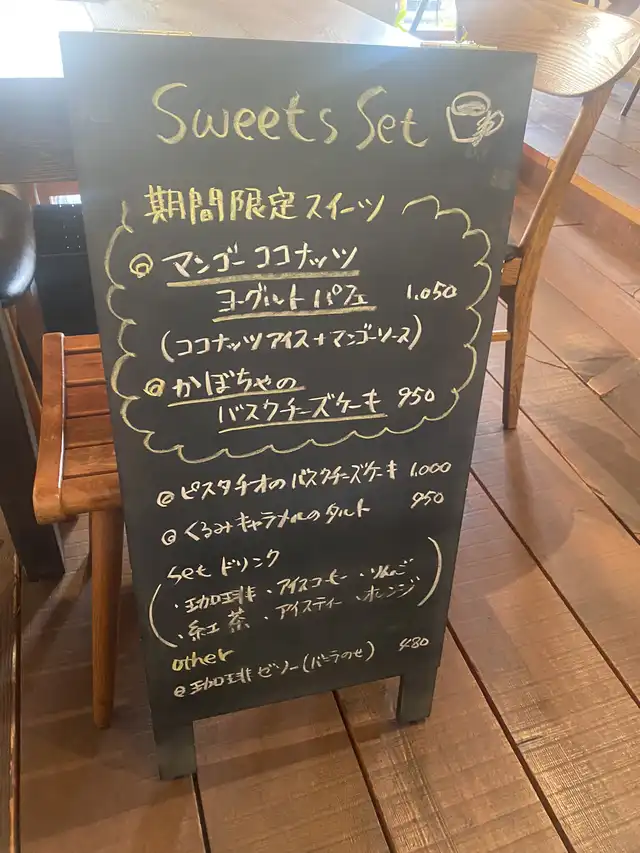 Sweets Set
期間限定スイーツ
◎ マンゴーココナッツ
ヨーグルトパフェ 1,050
(ココナッツアイス+マンゴーソース)
◎ かぼちゃの
バスクチーズケーキ 950
◎ ピスタチオのバスクチーズケーキ 1,000
◎ くるみキャラメルのタルト 950
Set ドリンク
・珈琲 ・アイスコーヒー ・りんご
・紅茶 ・アイスティー ・オレンジ
other
◎ 珈琲ゼリー(バニラのせ) 480